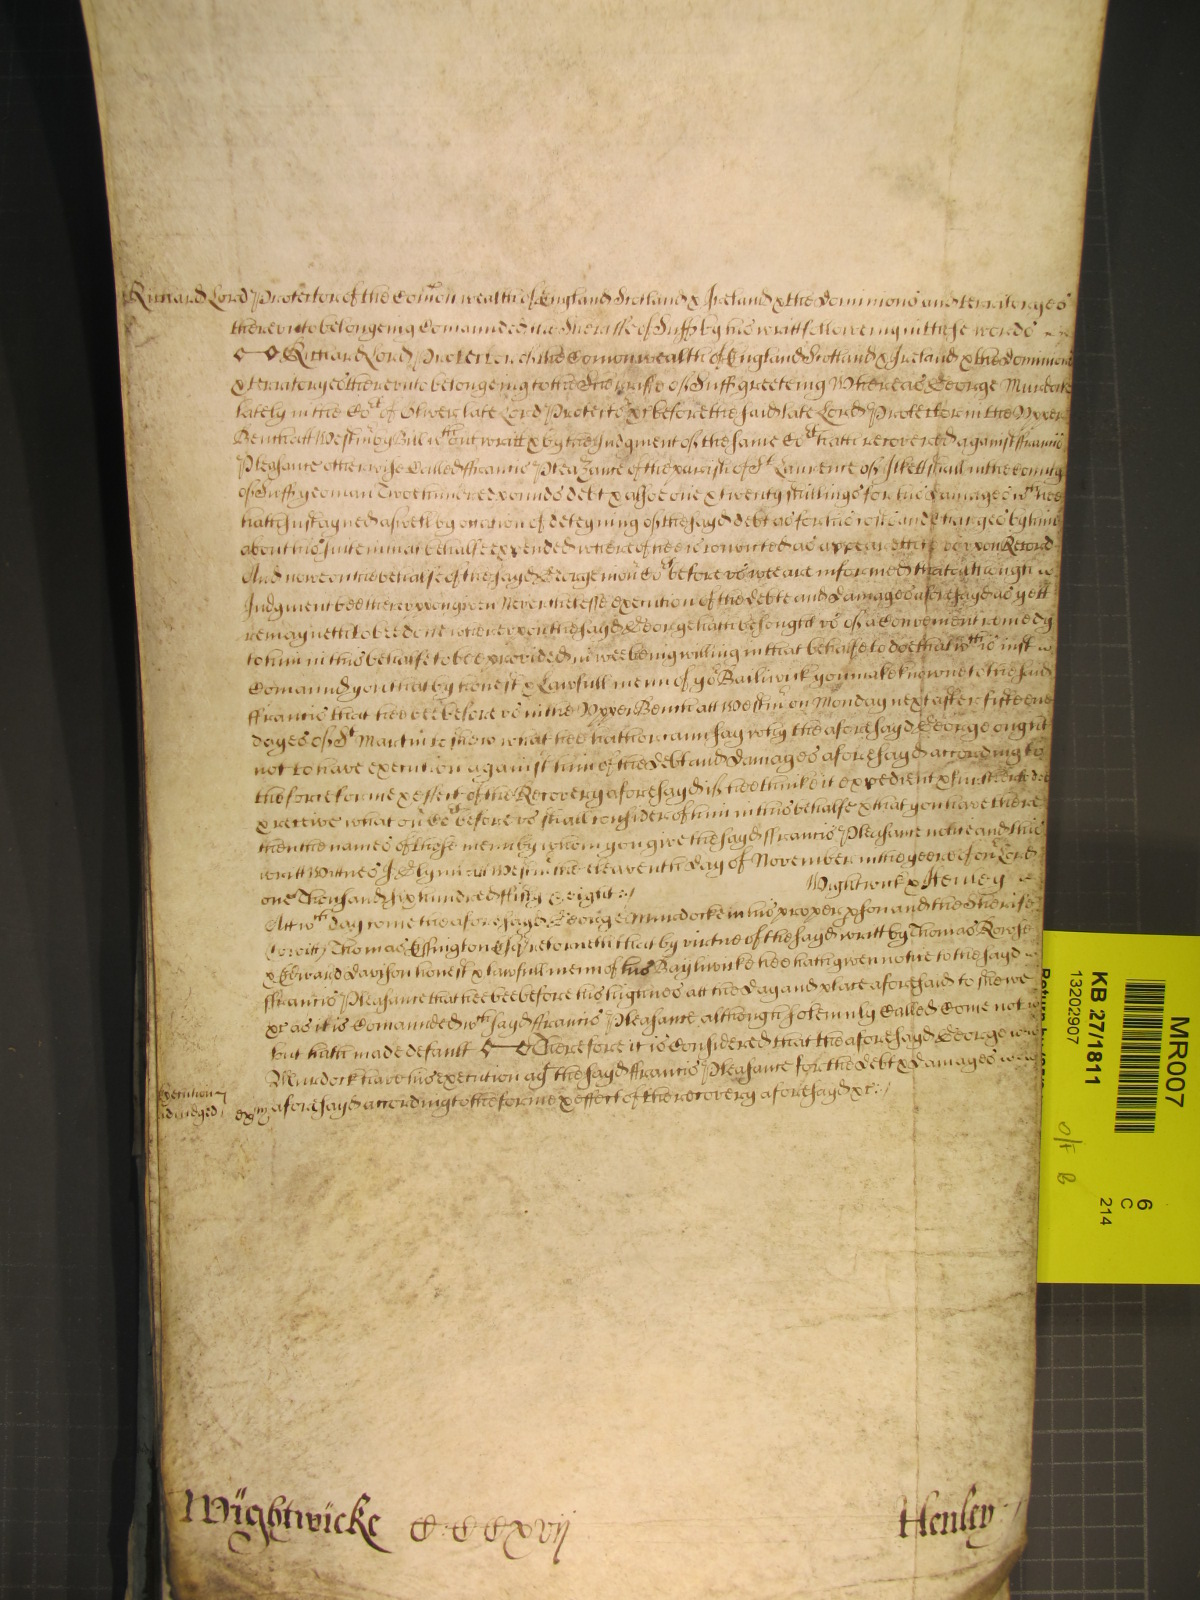 Richard Lord Protector of the Comon wealth of England Scotland & Ireland & the dominions and territoryes
therevnto belongeing Comaunded the Sheriffe of Suff by his writt followeing in these words
Richard Lord Protector of the Comonwealth of England Scotland & Ireland & the dominions
& territoryes therevnto belongeing to the Sheriffe of Suff greeteing Whereas George Murdocke
lately in the Cort of Oliver late Lord Protector &c before the said late Lord Protector in the Vpper
Bench att Westm by Bill wthout writt & by the Judgment of the same Cort hath recovered against ffrancis
Pleasance otherwise Called ffrancis Pleazance of the parish of St Laurence of Ilketshall in the County
of Suff yeoman Two hundred pounds debt & alsoe one & twenty shillings for his damages wch hee
hath sustayned aswell by occasion of deteyning of the sayd debt as for his costs and Charges by him
about his suite in that behalfe expended whereof hee is convicted as appeareth to vs vpon Record
And nowe on the behalfe of the sayd George in our Cort before vs wee are informed that although
Judgment bee therevpon given Neverthelesse execution of the debte and damages aforesayd as yett
remayneth to bee done wherevpon the sayd George hath besought vs of a Convenient remedy
to him in this behalfe to bee provided in wee being willing in that behalfe to doe that wch is iust
Comaund you that by honest & Lawfull menn of yor Bailiwick you make knowne to the said
ffrancis that hee bee before vs in the Vpper Bench att Westm on Monday next after fifteene
dayes of St Martin to shew what hee hath or cann say why the aforesayd George ought
not to have execution against him of the debt and damages aforesayd according to
the force forme & effect of the Recovery aforesayd if hee thinke it expedient & further to doe
& receive what our Cort before vs shall consider of him in this behalfe & that you have there
then the names of those menn by whom you give the sayd ffrancis Pleasance notice and this
writt Wittnes J Glynn att Westm the eleaventh day of November in the yeere of our Lord
one Thousand six hundred ffifty & eight
Wightwick & Henley
Att wch day come the aforesayd George Murdocke in his proper pson and the Sheriffe
(to witt) Thomas Essington Esqr retorneth that by virtue of the sayd writt by Thomas Rowse
& Edward Davison honest & lawfull menn of his Bayliwicke hee hath given notice to the sayd
ffrancis Pleasance that hee bee before his highnes att the day and place aforesaid to shewe
&c as it is Comaunded wch sayd ffrancis Pleasance although solemnly Called Come not
but hath made default Therefore it is Considered that the aforesayd George
Murdock have his execution agt the sayd ffrancis Pleasance for the debt & damages
aforesayd according to the forme & effect of the recovery aforesayd &c
Execution
adiudged
exm
Wightwicke CCCCxvij
Henley
MR007
KB 27/1811
13202907
6
C
214
O/F B